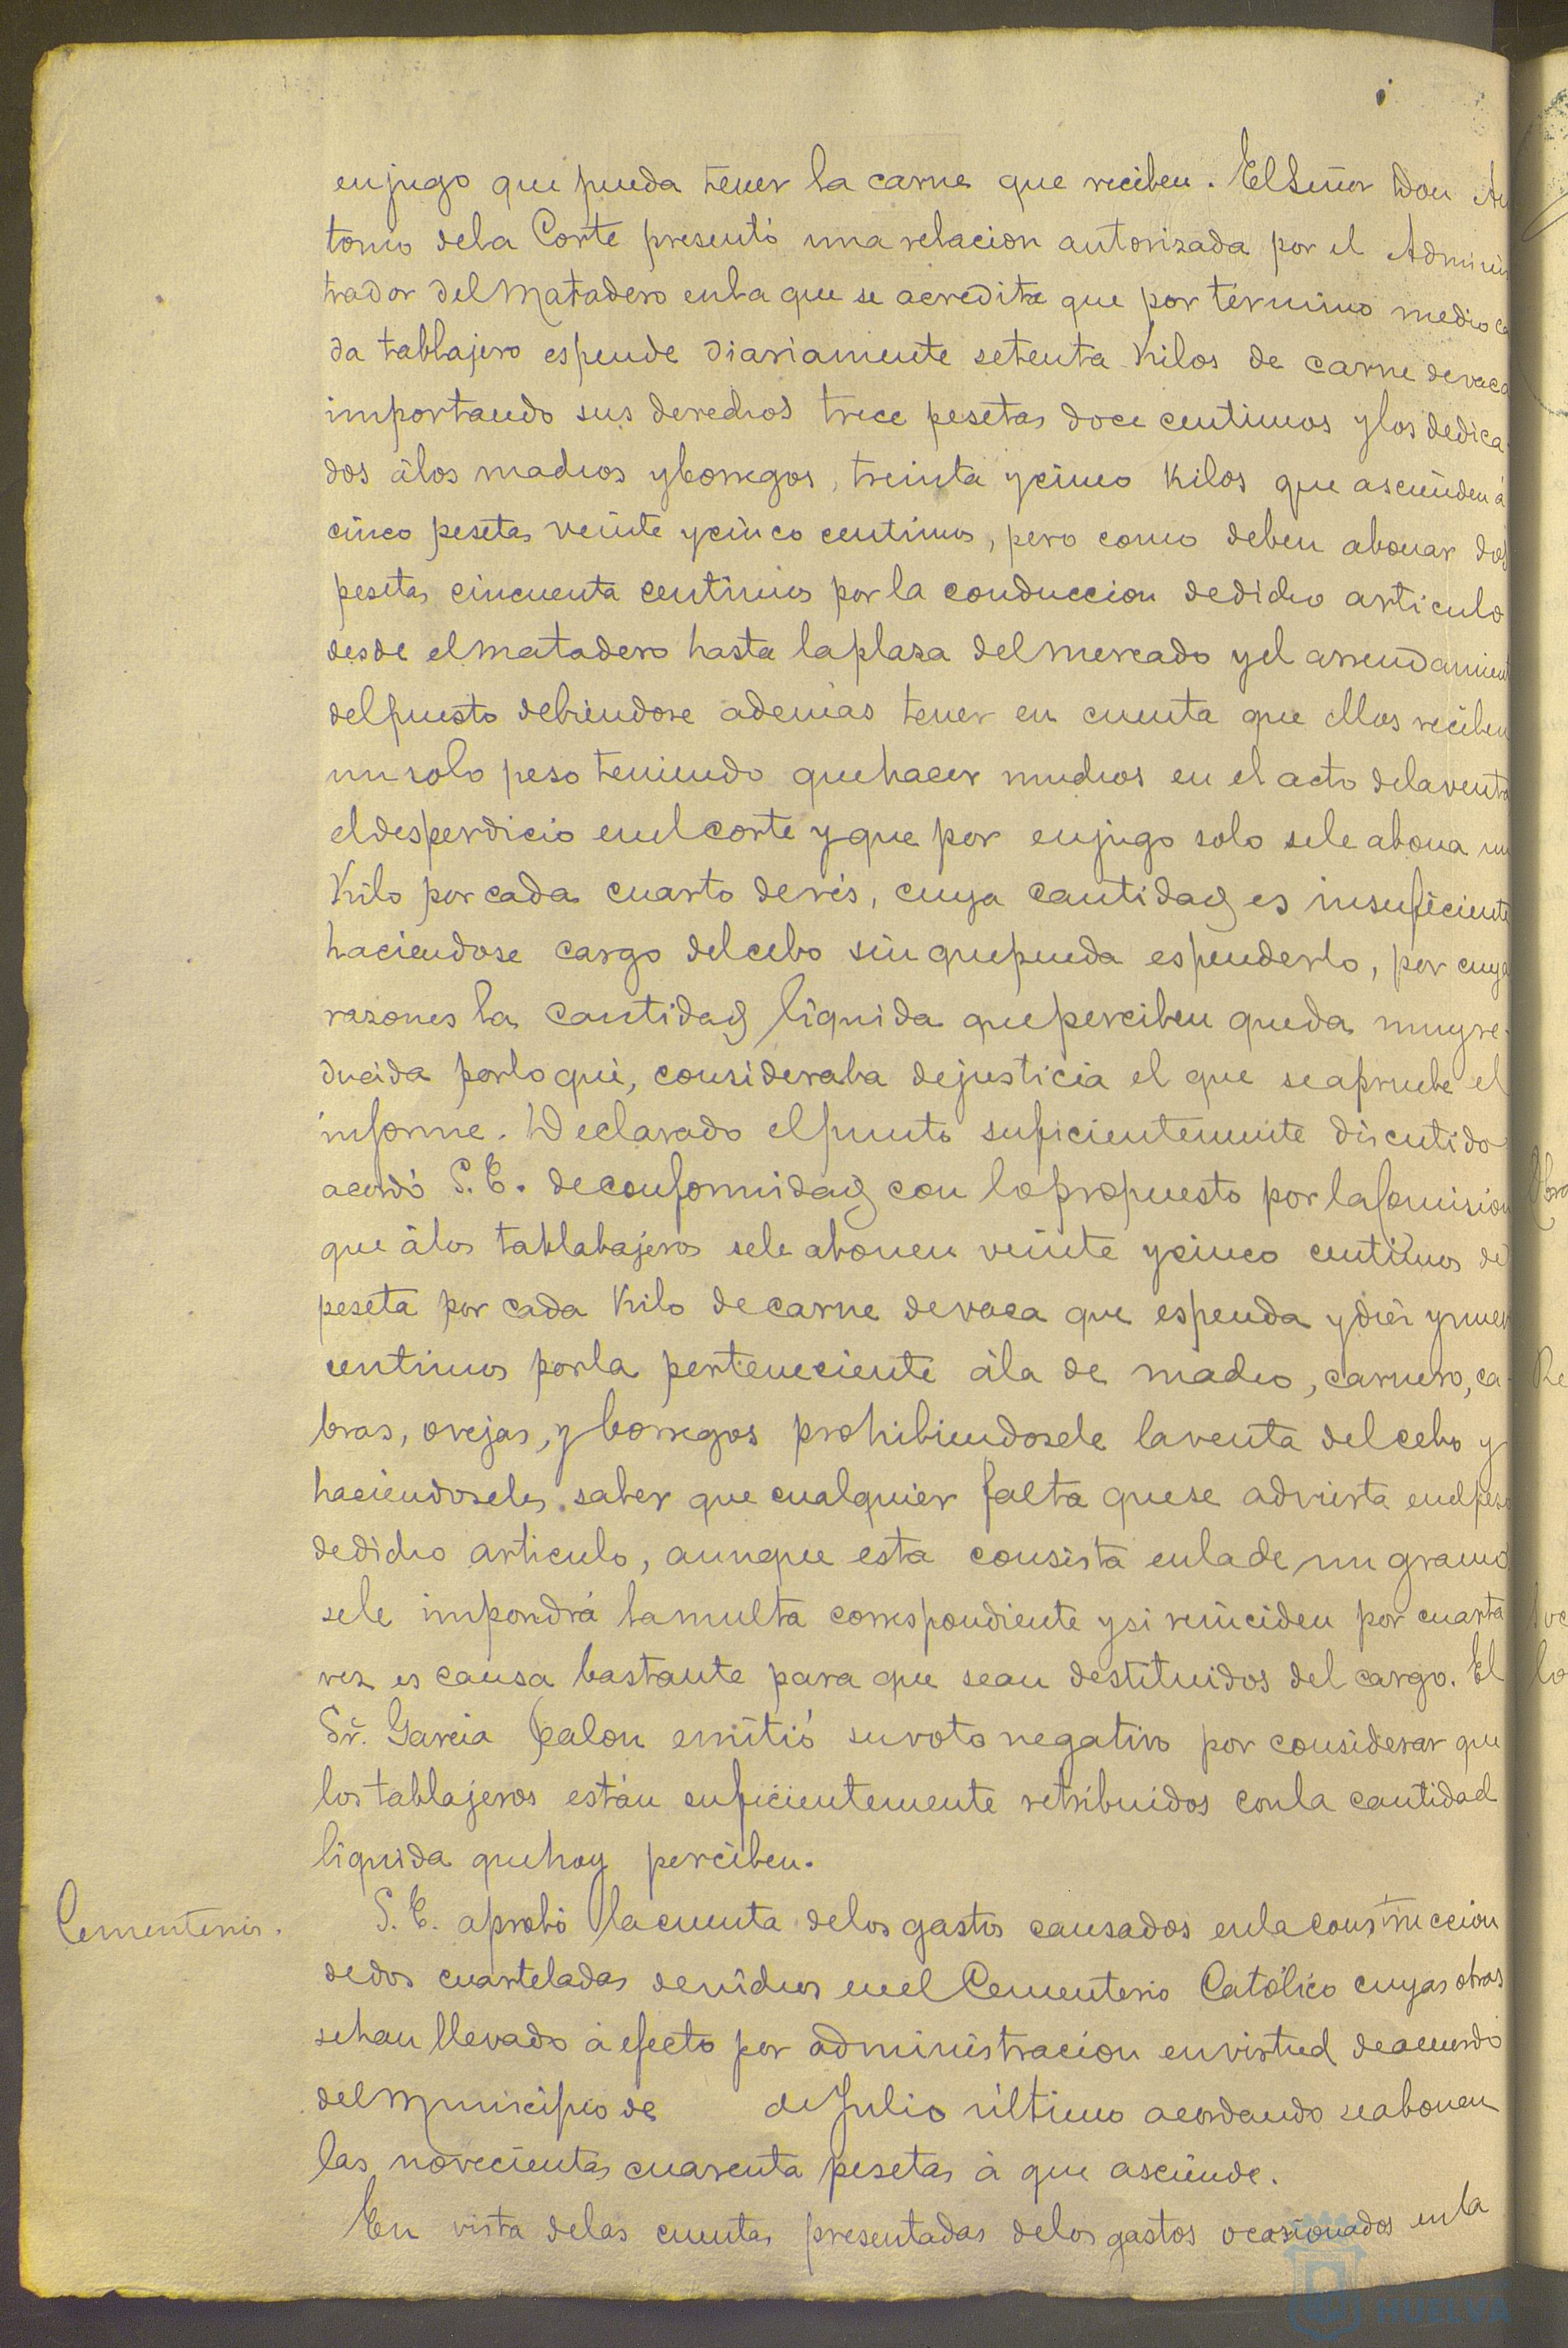 enjugo que pueda tener la carne que reciben. El Señor Don An
tonio dela Corte presentó una relacion autorizada por el Adminis
trador del Matadero enla que se acredita que por término medio ca
da tablajero espende diariamente setenta Kilos de carne de vaca
importando sus derechos trece pesetas doce centimos y los dedica-
dos álos machos y borregos, treinta y cinco Kilos que ascienden á
cinco pesetas veinte y cinco centimos, pero como deben abonar dos
pesetas cincuenta centimos por la conduccion de dicho articulo
desde el matadero hasta la plaza del mercado y el arrendamient
del puesto debiendose ademas tener en cuenta que ellos reciben
un solo peso teniendo que hacer muchos en el acto dela venta
el desperdicio en el corte y que por enjugo solo se le abona un
Kilo por cada cuarto de rés, cuya cantidad es insuficiente
haciendose cargo del cebo sin que pueda espenderlo, por cuya
razones la cantidad líquida que perciben queda muy re-
ducida por lo que, consideraba de justicia el que se apruebe el
informe. Declarado el punto suficientemente discutido
acordó S. E. de conformidad con lo propuesto por la Comision
que álos tablabajeros sele abonen veinte y cinco centimos de
peseta por cada Kilo de carne de vaca que espenda y diez y nuev
centimos por la perteneciente ála de macho, carnero, ca-
bras, ovejas, y borregos prohibiendosele la venta del cebo y
haciendoseles saber que cualquier falta que se advierta en el peso
de dicho articulo, aunque esta consista en la de un gramo
sele impondrá la multa correspondiente y si reinciden por cuarta
vez es causa bastante para que sean destituidos del cargo. El
Sr. Garcia Calon emitió su voto negativo por considerar que
los tablajeros están suficientemente retribuidos con la cantidad
liquida que hoy perciben.
Cementerios.
S. E. aprobó la cuenta delos gastos causados en la construccion
de dos cuarteladas de nichos en el Cementerio Católico cuyas obras
se han llevado á efecto por administracion en virtud de acuerdo
del Municipio de de Julio último acordando se abonen
las novecientas cuarenta pesetas á que asciende.
En vista delas cuentas presentadas delos gastos ocasionados en la
HUELVA